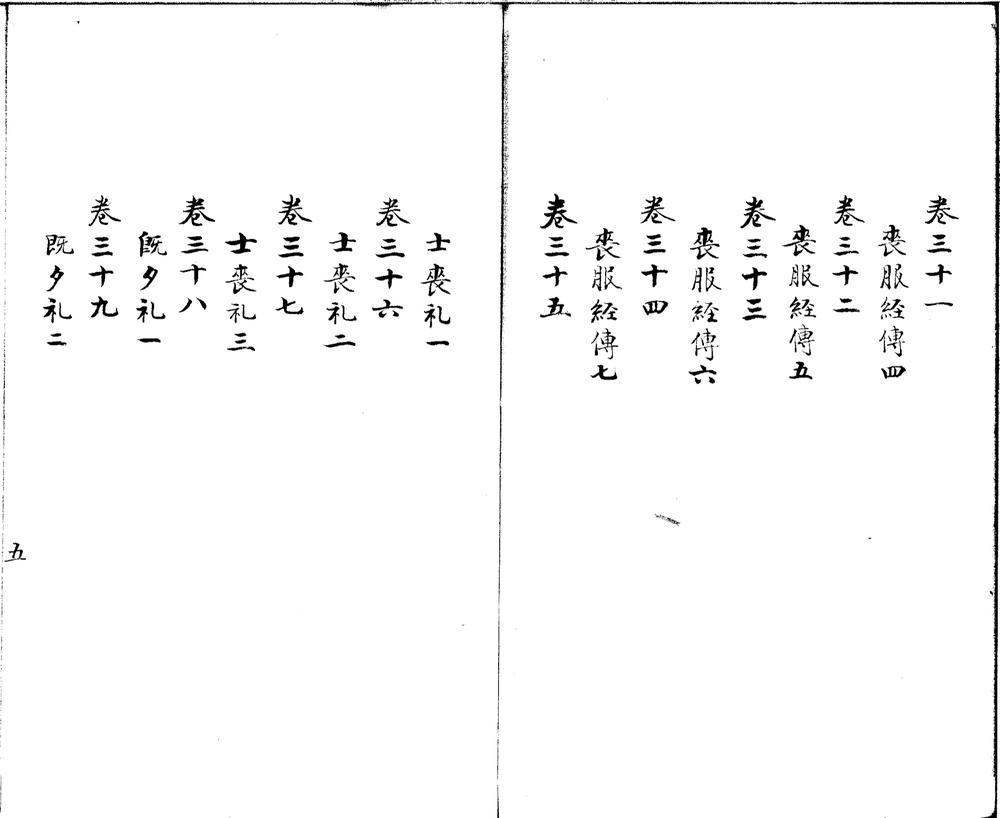 卷三十一
喪服経傳四
卷三十二
喪服経傳五
卷三十三
喪服経傳六
卷三十四
喪服経傳七
卷三十五
士喪礼一
卷三十六
士喪礼二
卷三十七
士喪礼三
卷三十八
既夕礼一
卷三十九
既夕礼二
五